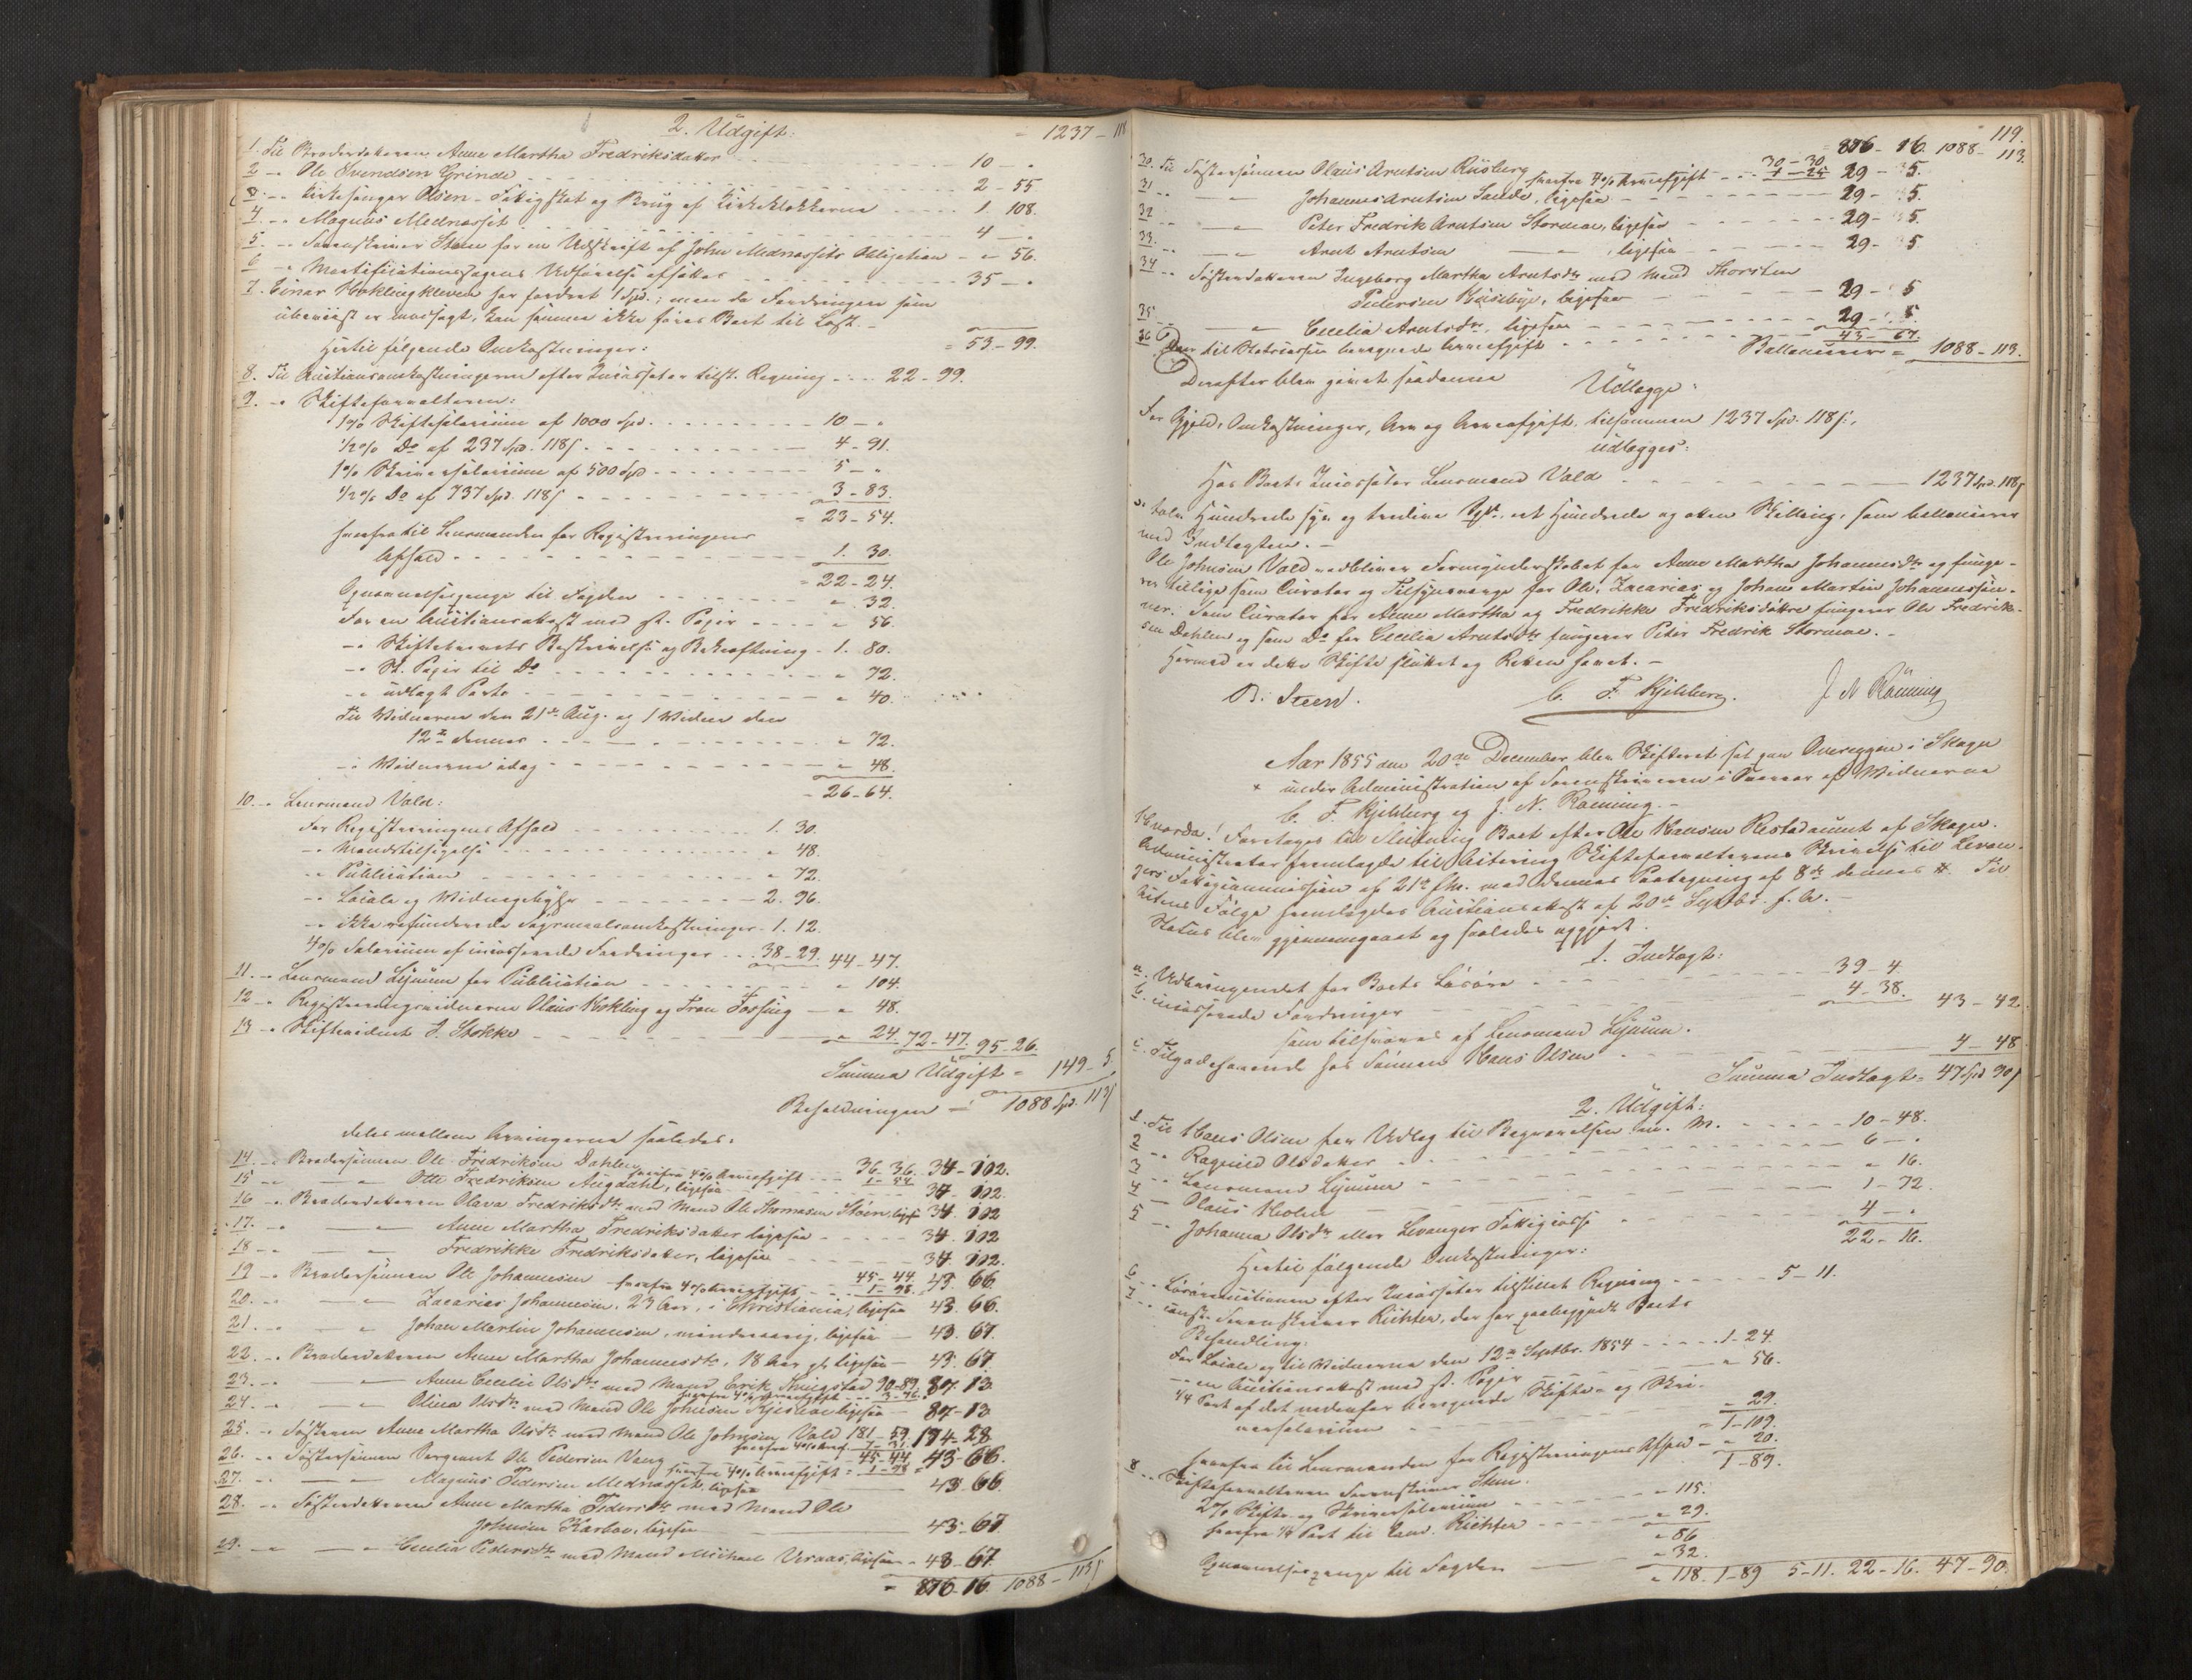 2. Udgift:
= 1237 - 118
1. Til Broderdatteren Anne Martha Fredriksdatter - - 10 - "
2 - " Ole Svendsen Grende - - - 2 - 55
3. - " Kirkesanger Olsen - Fattigskat og Brug af Kirkeklokkerne - - - 1. 108.
4. - " Magnus Mednasset - - - 4 - "
5. - " Sorenskriver Steen for en Udskrift af John Mednassets Obligation - " 56.
6 - " Mortificationssagens Udførelse afsættes - - - 35 - "
7. Einar Hoklingkleven har fordret 1 Spd.; men da Fordringen som
ubeviist er modsagt, kan samme ikke føres Boet til Last. -
Hertil følgende Omkostninger: = 53 - 99.
8. Til Auctionsomkostningerne efter Incassators tilst. Regning - - - 22 - 99.
9. - " Skifteforvalteren:
1 % Skiftesalarium af 1000 Spd. - - - 10 - "
1/2 % Do af 237 Spd. 118 s - - - 4 - 91.
1 % Skriversalarium af 500 Spd - - - 5 - "
1/2 % Do af 737 Spd. 118 s - - - 3 - 83.
= 23 - 54.
herfra til Lensmanden for Registreringens
Afhold - - - 1. 30.
= 22 - 24.
Gjennemselsespenge til Fogden - - - " 32.
For en Auctionsakast med st. Papir - - - " 56.
- " Skiftebrevets Beskrivelse og Bekræftning - 1. 80.
- " St. Papir til Do - - - " 72.
- " udlagt Porto - - - " 40.
Til Vidnerne den 21de Aug. og 1 Vidne den
12te dennes - - - " 72.
- " Vidnerne idag - - - " 48.
- 26 - 64.
10. - " Lensmand Vald:
For Registreringens Afhold - - - 1. 30.
- " Mandstilsigelse - - - " 48.
- " Publication - - - " 72.
- " Locale og Vidnegebyhr - - - 2. 96.
- " ikke refunderede Søgsmaalsomkostninger - 1. 12.
4 % Salarium af incasserede Fordringer - - - 38 - 29. 44 - 47.
11. - " Lensmand Lynum for Publication - - - " 104.
12 - " Registreringsvidnerne Olaus Hokling og Tron Fossing - " 48.
13 - " Skiftevidnet J. Stokke - - - " 24. 72 - 47. 95 - 26.
Summa Udgift = 149 - 5.
Beholdningen = 1088 Spd. 113 s
deles mellem Arvingerne saaledes:
14. - " Brodersønnen Ole Fredriksen Dahlen - - - 36. 36. 34 - 102.
herfra 4 % Arveafgift - - - 1 - 54
15 - " — " Otte Fredriksen Augdahl, ligesaa - - - 34 - 102.
16 - " Broderdatteren Olava Fredriksdtr med Mand Ole Thomasen Stein, ligs 34. 102
17. - " — " Anne Martha Fredriksdatter ligesaa - - - 34. 102
18 - " — " Fredrikke Fredriksdatter, ligesaa - - - 34 102.
19 - " Brodersønnen Ole Johannesen - - - 45 - 44. 43 66
herfra 4 % Arveafgift - - - 1 - 98.
20. - " — " Zacarias Johannesen, 23 Aar, i Christiania, ligesaa 43. 66.
21. - " — " Johan Martin Johannesen, mindreaarig, ligesaa — 43. 67.
22. - " Broderdatteren Anne Martha Johannesdtr, 18 Aar gl. ligesaa — 43. 67.
23. - " — " Anne Cecilie Olsdtr med Mand Erik Tuigstad 90 - 89. 87. 13
herfra 4 % Arveafgift - - - 3 - 76.
24. - " — " Olina Olsdtr med Mand Ole Johnsen ligesaa — 87 - 13
25. - " Søsteren Anne Martha Olsdtr med Mand Ole Johnsen Vald 181 - 59. 174 - 28
herfra 4 % Arvaf. 7 - 31.
26. - " Søstersønnen Sergeant Ole Pedersen Vang - - - 45 - 44. 43 - 66.
herfra 4 % Arveafgift = 1 - 98
27. - " — " Magnus Pedersen Mednasset, ligesaa — 43. 66.
28. - " Søsterdatteren Anne Martha Pedersdtr med Mand Ole
Johnsen Karbøe, ligesaa — 43 - 67
29. - " — " Cecilia Pedersdtr med Mand Michael Vesaas, ligesaa - 43 - 67.
= 876 - 16. 1088 - 113 s
119.
876 - 16. 1088 - 113.
30. Til Søstersønnen Olaus Arntsen Riisberg 30 - 30 29 - 5.
herfra 4 % Arveafgift - - - 1 - 25
31 - " — " Johannes Arntsen Sande, ligesaa - - - 29 - 5.
32 - " — " Peter Fredrik Arntsen Stormoe, ligesaa - - - 29 - 5.
33. - " — " Arnt Arntsen — , ligesaa - - - 29 - 5.
34 - " Søsterdatteren Ingeborg Martha Arntsdtr med Mand Thorsten
Pedersen Huseby, ligesaa - - - 29 - 5
35. — " Cecilia Arntsdtr, ligesaa - - - 29 - 5.
36. Den til Statscassen beregnede Arveafgift - - - 43 - 67.
Ballancerer = 1088 - 113.
Derefter blev gjort saadanne
Udlægge:
For Gjeld, Omkostninger, Arv og Arveafgift, tilsammen 1237 Spd. 118 s,
udlægges:
Hos Boets Incassator Lensmand Vald - - - 1237 Spd. 118 s
" tolv Hundrede syv og tredive Spd. et Hundrede og atten Skilling, som ballancerer
med Indtægten. -
Ole Johnsen Vald vedbliver Formynderskabet for Anne Martha Johannesdtr og funge-
rer tillige som Curator og Tilsynsværge for Ole, Zacarias og Johan Martin Johannessøn-
ner. Som Curator for Anne Martha og Fredrikke Fredriksdøttre fungerer Ole Fredrik-
sen Dahlen og som Do for Cecilia Arntsdtr fungerer Peter Fredrik Stormoe. -
Hermed er dette Skifte sluttet og Retten hævet. -
B. Steen. C. F. Kjelberg. J N Rönning
Aar 1855 den 20de December blev Skifteret sat paa Overeggen i Skogn
under Administration af Sorenskriveren i Overvær af Vidnerne
C. F. Kjelberg og J. N. Rönning. -
Hvorda! Foretages til Slutning Boet efter Ole Hansen Restadaunet af Skogn.
Administrator fremlagde til Acitering Skifteforvalterens Skrivelse til Levan-
gers Fattigcommission af 21de f.M. med dennes Paategning af 8de dennes #. Til
Actens Følge fremlagdes Auctionsakast af 20de Septbr. f. A. -
Status blev gjennemgaaet og saaledes opgjort.
1. Indtægt:
a. Udbringendet for Boets Løsøre - - - 39 - 4.
b. incasserede Fordringer - - - 4 - 38. 43 - 42.
som tilsvares af Lensmand Lynum.
c. Tilgodehavende hos Sønnen Hans Olsen - - - 4 - 48
Summa Indtægt = 47 Spd 90 s
2. Udgift:
1. Til Hans Olsen for Udlæg til Begravelsen m. M. - - - 10 - 48.
2 - " Ragnild Olsdatter - - - 6 - "
3 - " Lensmand Lynum - - - " 16.
4 — Olaus Holm — 1 - 72.
5 - " Johanna Olsdtr eller Levanger Fattigcasse - - - 4 - "
22 - 16.
Hertil følgende Omkostninger:
6 - " Løsøreauctionen efter Incassators tilstillet Regning - - - 5 - 11.
7 - " const. Sorenskriver Richter, der har paabegyndt Boets
Behandling:
For Locale og til Vidnerne den 12te Septbr. 1854 - - - 1 - 24.
- " en Auctionsakast med st. Papir - - - " 56.
1/4 Part af det nedenfor beregnede Skifte- og Skri-
versalarium - - - " 29.
= 1 - 109.
herfra til Lensmanden for Registreringens Afhold - " 20.
1 - 89.
8 - " Skifteforvalteren Sorenskriver Steen.
2 % Skifte- og Skriversalarium - - - " 115.
herfra 1/4 Part til Cand. Richter - - - " 29.
" 86
Gjennemselsespenge til Fogden — " 32.
= 118. 1 - 89 5 - 11. 22 - 16. 47 - 90.